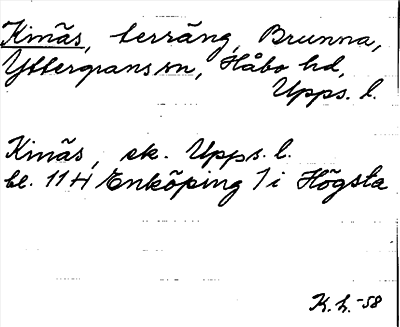 Kinäs, terräng, Brunna,
Yttergrans sn, Håbo hd,
Upps. l.
Kinäs, ek. Upps. l.
bl. 11H Enköping 7i Högsta
K.L.-58